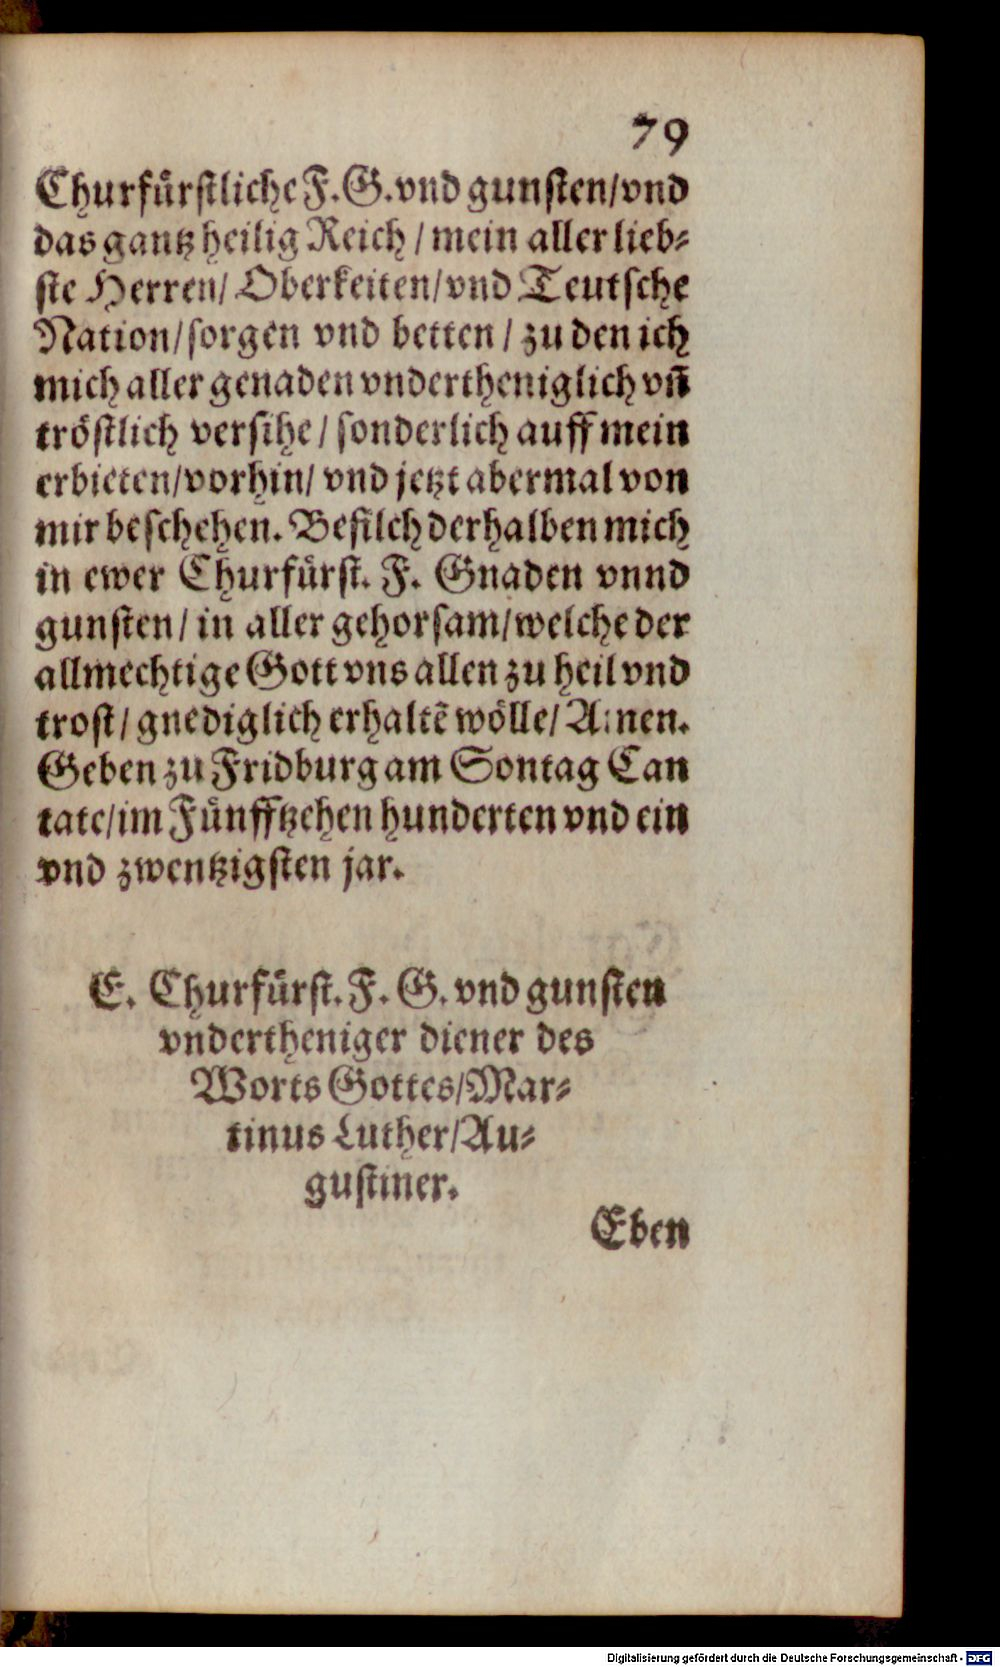 79
Churfürstliche F. G. vnd gunsten/ vnd
das gantz heilig Reich / mein aller lieb⸗
ste Herren/ Oberkeiten/ vnd Teutsche
Nation/ sorgen vnd betten / zu den ich
mich aller genaden vndertheniglich vñ
tröstlich versihe / sonderlich auff mein
erbieten/ vorhin/ vnd jetzt abermal von
mir beschehen. Befilch derhalben mich
in ewer Churfürst. F. Gnaden vnnd
gunsten/ in aller gehorsam/ welche der
allmechtige Gott vns allen zu heil vnd
trost/ gnediglich erhaltẽ wölle/ Amen.
Geben zu Fridburg am Sontag Can
tate/ im Fünfftzehen hunderten vnd ein
vnd zwentzigsten jar.
E. Churfürst. F. G. vnd gunsten
vndertheniger diener des
Worts Gottes/ Mar⸗
tinus Luther/ Au⸗
gustiner.
Eben
Digitalisierung gefördert durch die Deutsche Forschungsgemeinschaft - DFG